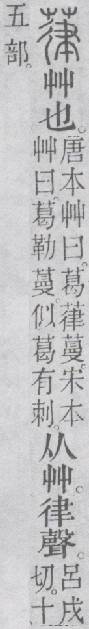 葎艸也。唐本艸曰。葛葎蔓。宋本艸曰。葛勒蔓似葛有刺。从艸。律聲。呂戌切。十
五部。